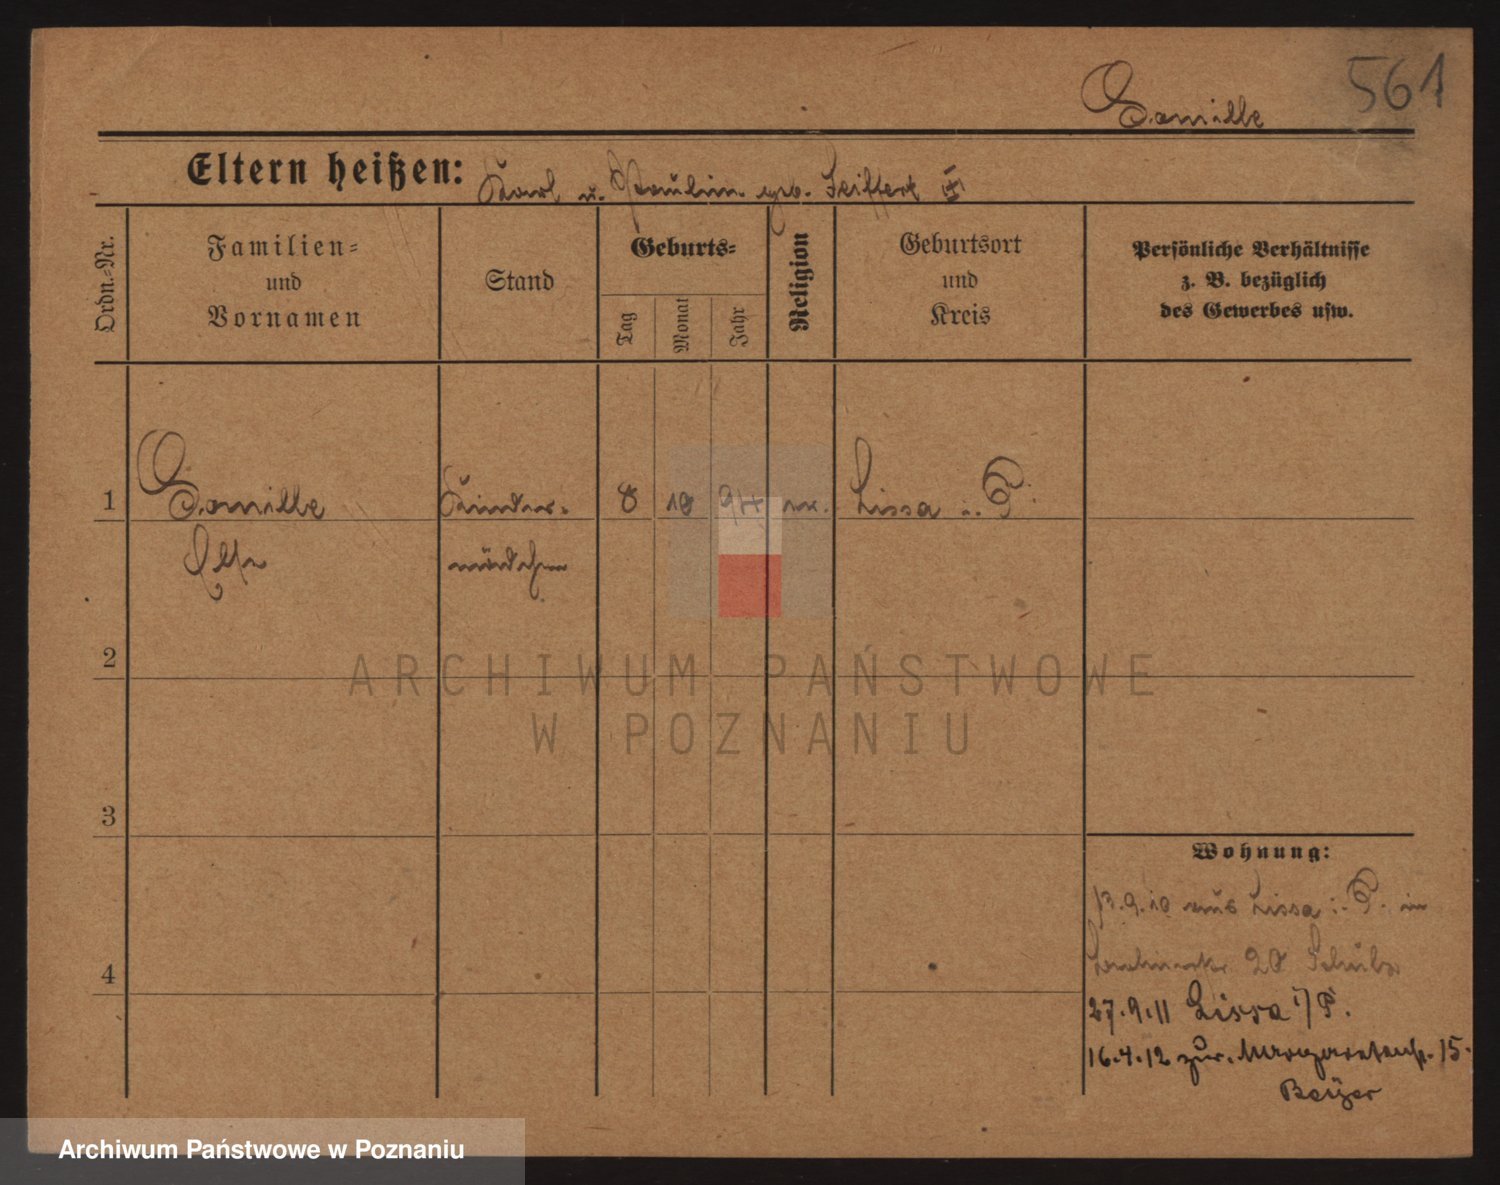 561
Camille
Eltern heißen: Karl u. Paulin. geb. Seiffert
Ordn.=Nr.
Familien=
und
Vornamen
Stand
Geburts=
Tag
Monat
Jahr
Religion
Geburtsort
und
Kreis
Persönliche Verhältnisse
z. B. bezüglich
des Gewerbes usw.
1 Camille Kinder= 8 10 94 ev. Lissa i. P.
Else mädchen
2
ARCHIWUM PAŃSTWOWE
W POZNANIU
3
Wohnung:
13.9.10 aus Lissa i. P. in
20 Schulz
4
27.9.11 Lissa i/P.
16.4.12 zur. Margaretenstr. 15.
Beyer
Archiwum Państwowe w Poznaniu